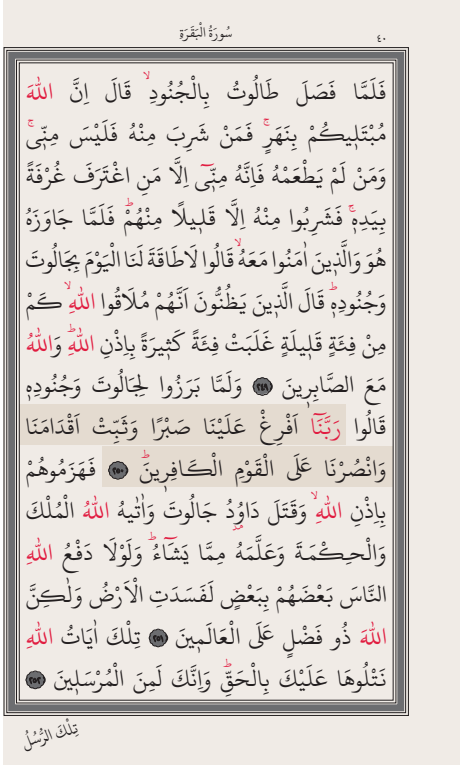 سُورَةُ الْبَقَرَةِ
٤٠
فَلَمَّا فَصَلَ طَالُوتُ بِالْجُنُودِۙ قَالَ اِنَّ اللّٰهَ
مُبْتَل۪يكُمْ بِنَهَرٍۚ فَمَنْ شَرِبَ مِنْهُ فَلَيْسَ مِنّ۪يۚ
وَمَنْ لَمْ يَطْعَمْهُ فَاِنَّهُ مِنّ۪ٓي اِلَّا مَنِ اغْتَرَفَ غُرْفَةً
بِيَدِه۪ۚ فَشَرِبُوا مِنْهُ اِلَّا قَل۪يلًا مِنْهُمْۜ فَلَمَّا جَاوَزَهُ
هُوَ وَالَّذ۪ينَ اٰمَنُوا مَعَهُۙ قَالُوا لَا طَاقَةَ لَنَا الْيَوْمَ بِجَالُوتَ
وَجُنُودِه۪ۜ قَالَ الَّذ۪ينَ يَظُنُّونَ اَنَّهُمْ مُلَاقُوا اللّٰهِۙ كَمْ
مِنْ فِئَةٍ قَل۪يلَةٍ غَلَبَتْ فِئَةً كَث۪يرَةً بِاِذْنِ اللّٰهِۜ وَاللّٰهُ
مَعَ الصَّابِر۪ينَ ﴿٢٤٩﴾ وَلَمَّا بَرَزُوا لِجَالُوتَ وَجُنُودِه۪
قَالُوا رَبَّنَٓا اَفْرِغْ عَلَيْنَا صَبْرًا وَثَبِّتْ اَقْدَامَنَا
وَانْصُرْنَا عَلَى الْقَوْمِ الْكَافِر۪ينَۜ ﴿٢٥٠﴾ فَهَزَمُوهُمْ
بِاِذْنِ اللّٰهِۙ وَقَتَلَ دَاوُ۫دُ جَالُوتَ وَاٰتٰيهُ اللّٰهُ الْمُلْكَ
وَالْحِكْمَةَ وَعَلَّمَهُ مِمَّا يَشَٓاءُۜ وَلَوْلَا دَفْعُ اللّٰهِ
النَّاسَ بَعْضَهُمْ بِبَعْضٍ لَفَسَدَتِ الْاَرْضُ وَلٰكِنَّ
اللّٰهَ ذُو فَضْلٍ عَلَى الْعَالَم۪ينَ ﴿٢٥١﴾ تِلْكَ اٰيَاتُ اللّٰهِ
نَتْلُوهَا عَلَيْكَ بِالْحَقِّۜ وَاِنَّكَ لَمِنَ الْمُرْسَل۪ينَ ﴿٢٥٢﴾
تِلْكَ الرُّسُلُ